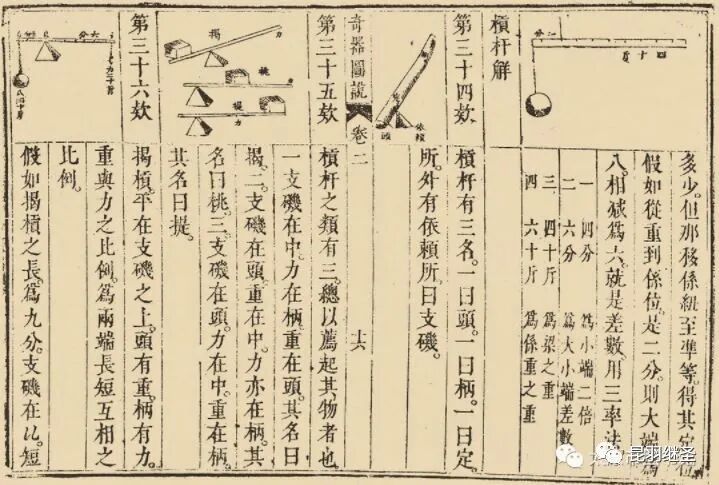 多少。但那移係紐至準等。得其定位
假如從重到係位。是二分。則大端爲
八。相减爲六。就是差數。用三率法
一 四分 爲小端二倍
二 六分 爲大小端差數
三 四十斤 爲梁之重
四 六十斤 爲係重之重
槓杆解
第三十四欸
槓杆有三名。一曰頭。一曰柄。一曰定
所。外有依賴所。曰支磯。
奇器圖說 卷二 十六
第三十五欸
槓杆之類有三。總以薦起其物者也
一支磯在中。力在柄。重在頭。其名曰
揭。二支磯在頭。重在中。力亦在柄。其
名曰挑。三支磯在頭。力在中。重在柄。
其名曰提。
揭
力
挑
提
力
第三十六欸
揭槓。平在支磯之上。頭有重。柄有力。
重與力之比例。爲兩端長短互相之
比例。
假如揭槓之長。爲九分。支磯在匕。短
六分
昆羽继圣